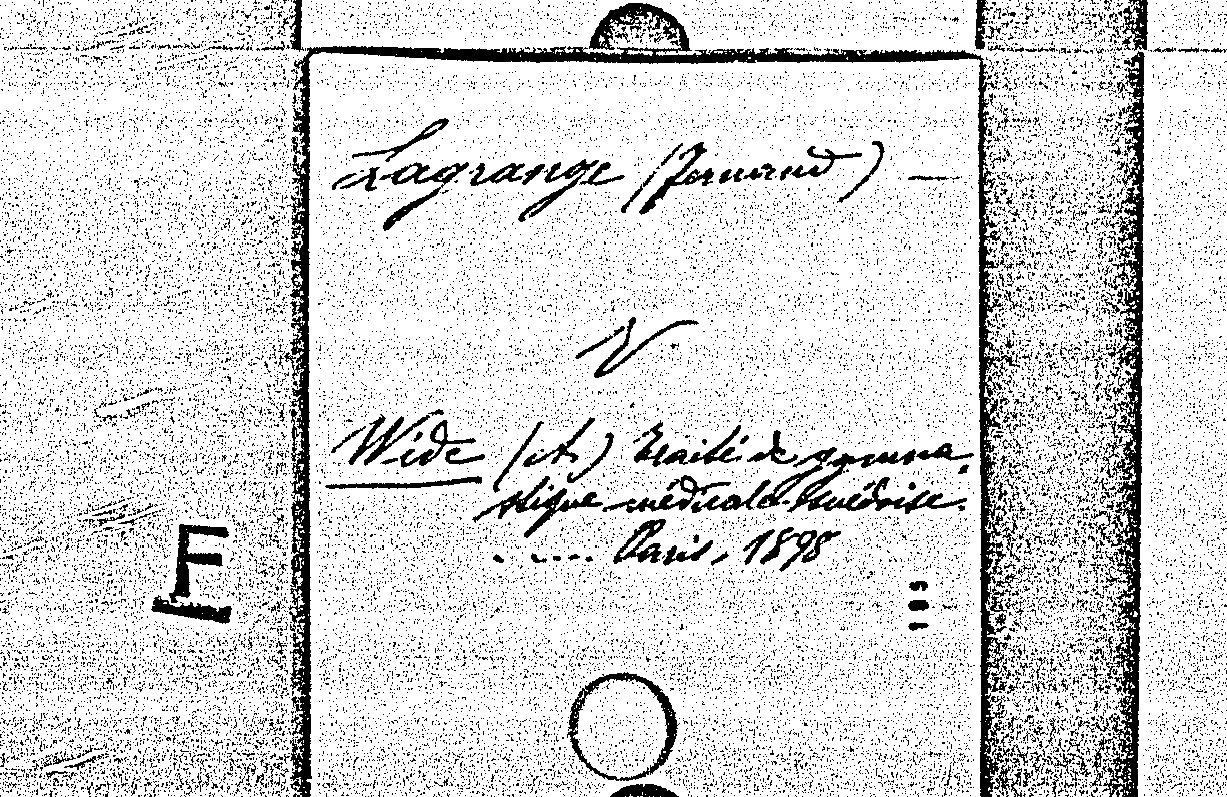 Lagrange (Fernand) —
V
Wide (A.) Traité de gymna-
stique médicale suédoise.
..... Paris, 1898
F
195